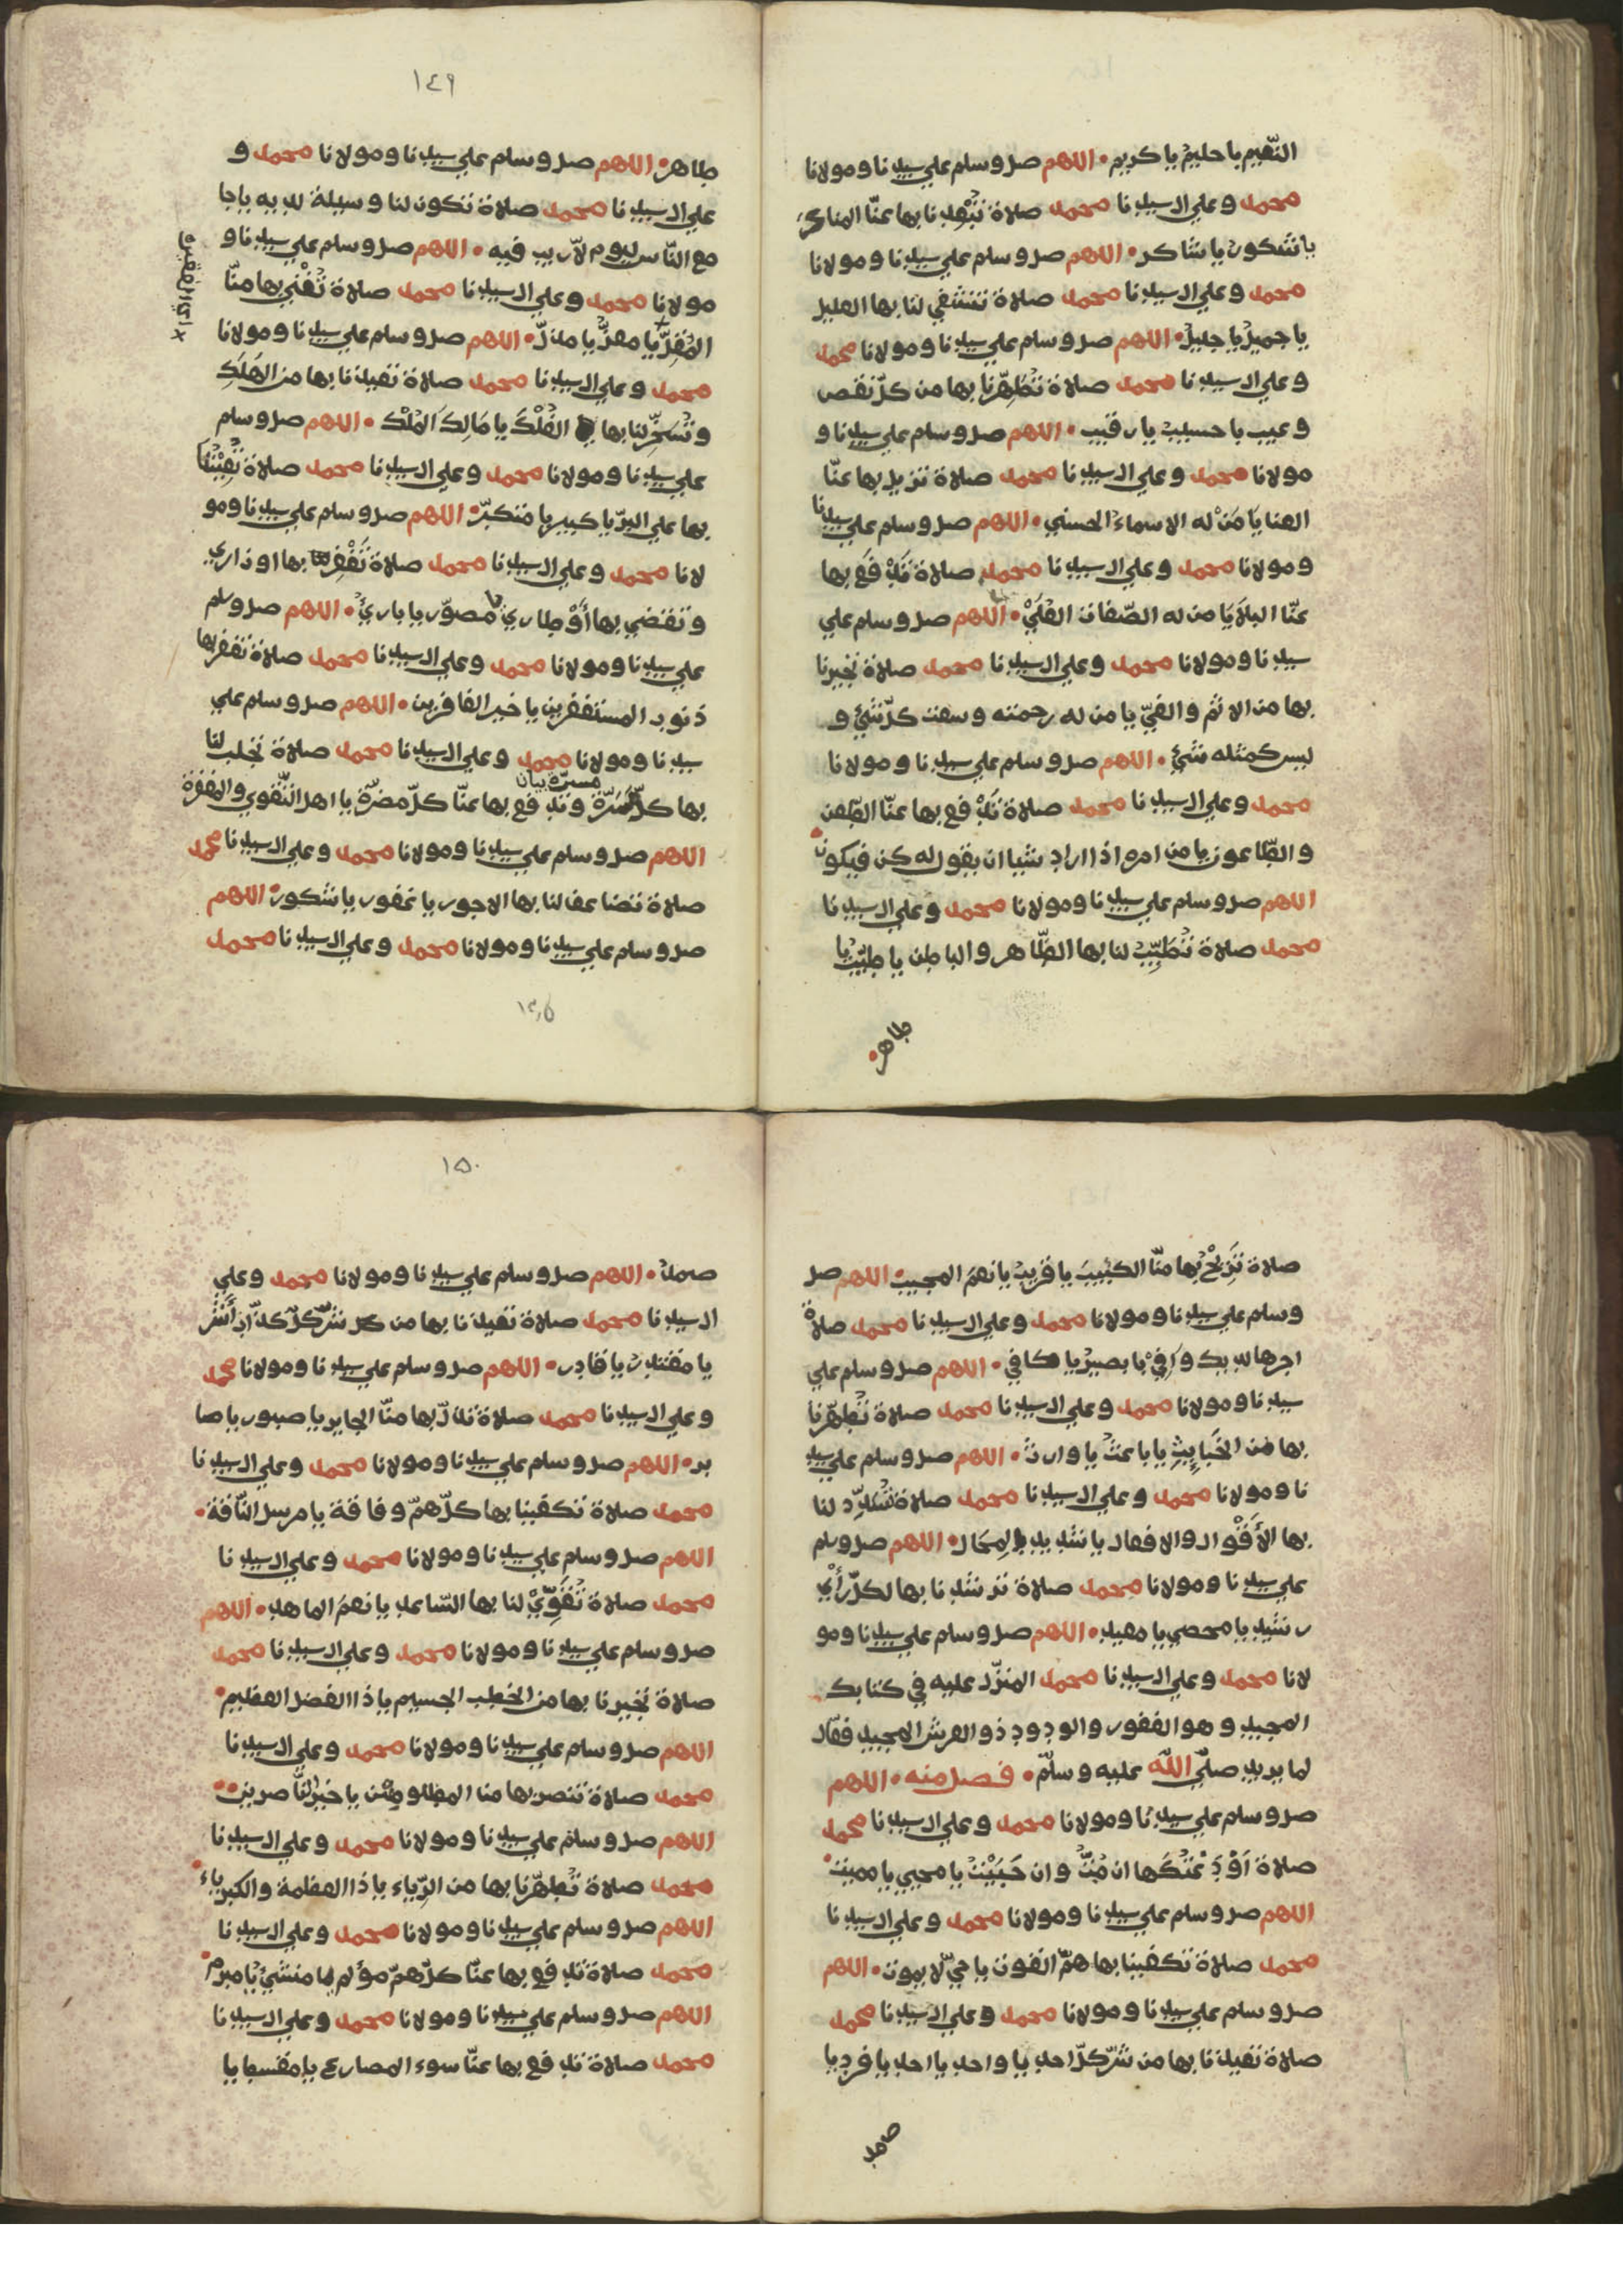 النّعيم يا حليم يا كريم • اللهم صل وسلم علي سيدنا ومولانا
محمد وعلي ال سيدنا محمد صلاة تُبْعِدنا بها عنّا المناكر
يا شكور يا شاكر • اللهم صل وسلم علي سيدنا ومولانا
محمد وعلي ال سيدنا محمد صلاة تشفي لنا بها العليل
يا جميل يا جليل • اللهم صل وسلم علي سيدنا ومولانا محمد
وعلي ال سيدنا محمد صلاة تُطَهِّرنا بها من كلّ نقص
وعيب يا حسيب يا رقيب • اللهم صل وسلم علي سيدنا و
مولانا محمد وعلي ال سيدنا محمد صلاة تزيل بها عنّا
العنا يا مَنْ له الاسماء الحسني • اللهم صل وسلم علي سيدنا
ومولانا محمد وعلي ال سيدنا محمد صلاة تَدْفَع بها
عنّا البلايا من له الصّفات العُلَيْ • اللهم صل وسلم علي
سيدنا ومولانا محمد وعلي ال سيدنا محمد صلاة تجيرنا
بها من الاثم والغيّ يا من له رحمته وسعت كلّ شيْ و
ليس كمثله شيْ • اللهم صل وسلم علي سيدنا ومولانا
محمد وعلي ال سيدنا محمد صلاة تَدْفع بها عنّا الطّعن
والطّاعون يا من امره اذا اراد شيا ان يقول له كن فيكون •
اللهم صل وسلم علي سيدنا ومولانا محمد وعلي ال سيدنا
محمد صلاة تُطَيِّبُ لنا بها الظّاهر والباطن يا طيّب يا
طاهر •
١٤٩
طاهر • اللهم صل وسلم علي سيدنا ومولانا محمد و
علي ال سيدنا محمد صلاة تكون لنا وسيلة لديه يا جا
مع النّاس ليوم لاّ ريب فيه • اللهم صل وسلم علي سيدنا و
مولانا محمد وعلي ال سيدنا محمد صلاة تُغْني بها منّا
يا معزّ يا مذلّ • اللهم صل وسلم علي سيدنا ومولانا
محمد وعلي ال سيدنا محمد صلاة تعيذنا بها من الهَلَكِ
وتُسَخِّر لنا بها الفُلْكَ يا مَالِكَ المُلْك • اللهم صل وسلم
علي سيدنا ومولانا محمد وعلي ال سيدنا محمد صلاة تُعِيْننا
بها علي البرّ يا كبير يا متكبّر • اللهم صل وسلم علي سيدنا ومو
لانا محمد وعلي ال سيدنا محمد صلاة تَغْفِر بها اوزاري
وتقضي بها أَوْطاري يا مصوّر يا باريُ • اللهم صل وسلم
علي سيدنا ومولانا محمد وعلي ال سيدنا محمد صلاة تغفر بها
ذنوب المستغفرين يا خير الغافرين • اللهم صل وسلم علي
سيدنا ومولانا محمد وعلي ال سيدنا محمد صلاة تجلب لنا
مسرّة بيان
بها كلّ مَسَرّة وتدفع بها عنّا كلّ مضرّة يا اهل التّقوي والمغفرة
اللهم صل وسلم علي سيدنا ومولانا محمد وعلي ال سيدنا محمد
صلاة تضاعف لنا بها الاجور يا غفور يا شكور • اللهم
صل وسلم علي سيدنا ومولانا محمد وعلي ال سيدنا محمد
صلاة تُزِيْحُ بها منّا الكئِيبَ يا قريب يا نعم المجيب • اللهم صل
وسلم علي سيدنا ومولانا محمد وعلي ال سيدنا محمد صلاة
اجرها لديك وَافِيْ يا بصير يا كافي • اللهم صل وسلم علي
سيدنا ومولانا محمد وعلي ال سيدنا محمد صلاة تُطهّرنا
بها من الخَبايِثِ يا باعثُ يا وارث • اللهم صل وسلم علي سيد
نا ومولانا محمد وعلي ال سيدنا محمد صلاة تُسَدِّد لنا
بها الأَقْوال والافعال يا شديد المِحَال • اللهم صل وسلم
علي سيدنا ومولانا محمد صلاة ترشدنا بها لكلّ رأْيٍ
رشيد يا محصي يا معيد • اللهم صل وسلم علي سيدنا ومو
لانا محمد وعلي ال سيدنا محمد المنزّل عليه في كتابك
المجيد وهو الغفور والودود ذو العرش المجيد فعّال
لما يريد صلّي اللّه عليه وسلّم • فصل منه • اللهم
صل وسلم علي سيدنا ومولانا محمد وعلي ال سيدنا محمد
صلاة ان مُتُّ وان حَيَيْتُ يا محيي يا مميت •
اللهم صل وسلم علي سيدنا ومولانا محمد وعلي ال سيدنا
محمد صلاة تكفينا بها همّ القوت يا حيّ لا يموت • اللهم
صل وسلم علي سيدنا ومولانا محمد وعلي ال سيدنا محمد
صلاة تعيذنا بها من شرّ كلّ احد يا واحد يا احد يا فرد يا
صمد
١٥٠
صمد • اللهم صل وسلم علي سيدنا ومولانا محمد وعلي
ال سيدنا محمد صلاة تعيذنا بها من شرّ كلّ كذّاب أَشر
يا مقتدر يا قادر • اللهم صل وسلم علي سيدنا ومولانا محمد
وعلي ال سيدنا محمد صلاة تذلّ بها منّا الجابر يا صبور يا صا
بر • اللهم صل وسلم علي سيدنا ومولانا محمد وعلي ال سيدنا
محمد صلاة تكفينا بها كلّ همّ وفاقة يا مرسل النّاقة •
اللهم صل وسلم علي سيدنا ومولانا محمد وعلي ال سيدنا
محمد صلاة تُقَوِّيْ لنا بها السّاعد يا نعم الماهد • اللهم
صل وسلم علي سيدنا ومولانا محمد وعلي ال سيدنا محمد
صلاة تجيرنا بها من الخطب الجسيم يا ذا الفضل العظيم •
اللهم صل وسلم علي سيدنا ومولانا محمد وعلي ال سيدنا
محمد صلاة تنصر بها منا المظلومين يا خير النّاصرين •
اللهم صل وسلم علي سيدنا ومولانا محمد وعلي ال سيدنا
محمد صلاة تُطهّرنا بها من الرّياء يا ذا العظمة والكبرياء •
اللهم صل وسلم علي سيدنا ومولانا محمد وعلي ال سيدنا
محمد صلاة تدفع بها عنّا كلّ همّ مؤلم يا منشيُ يا مبرم •
اللهم صل وسلم علي سيدنا ومولانا محمد وعلي ال سيدنا
محمد صلاة تدفع بها عنّا سوء المصارع يا مقسط يا